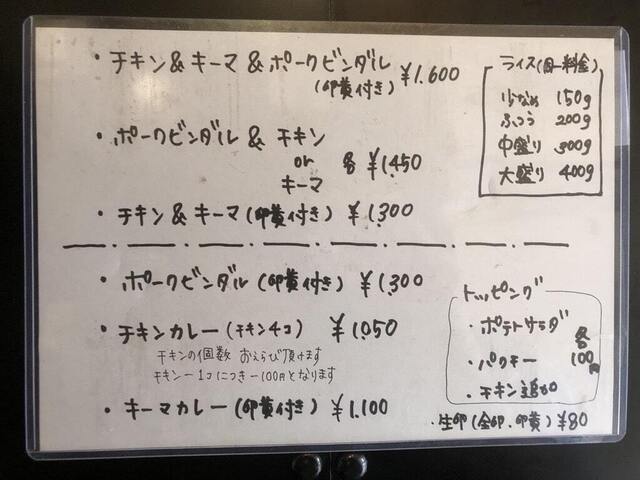 ・チキン&キーマ&ポークビンダル
(卵黄付き) ¥1.600
・ポークビンダル & チキン
or 各 ¥1.450
キーマ
・チキン&キーマ(卵黄付き) ¥1.300
・ポークビンダル(卵黄付き) ¥1.300
・チキンカレー(チキン4コ) ¥1.050
チキンの個数 おえらび頂けます
チキン一1コにつき-100円となります
・キーマカレー(卵黄付き) ¥1.100
ライス(同一料金)
少なめ 150g
ふつう 200g
中盛り 300g
大盛り 400g
トッピング
・ポテトサラダ
・パクチー
・チキン追加
各100円
・生卵(全卵、卵黄) ¥80